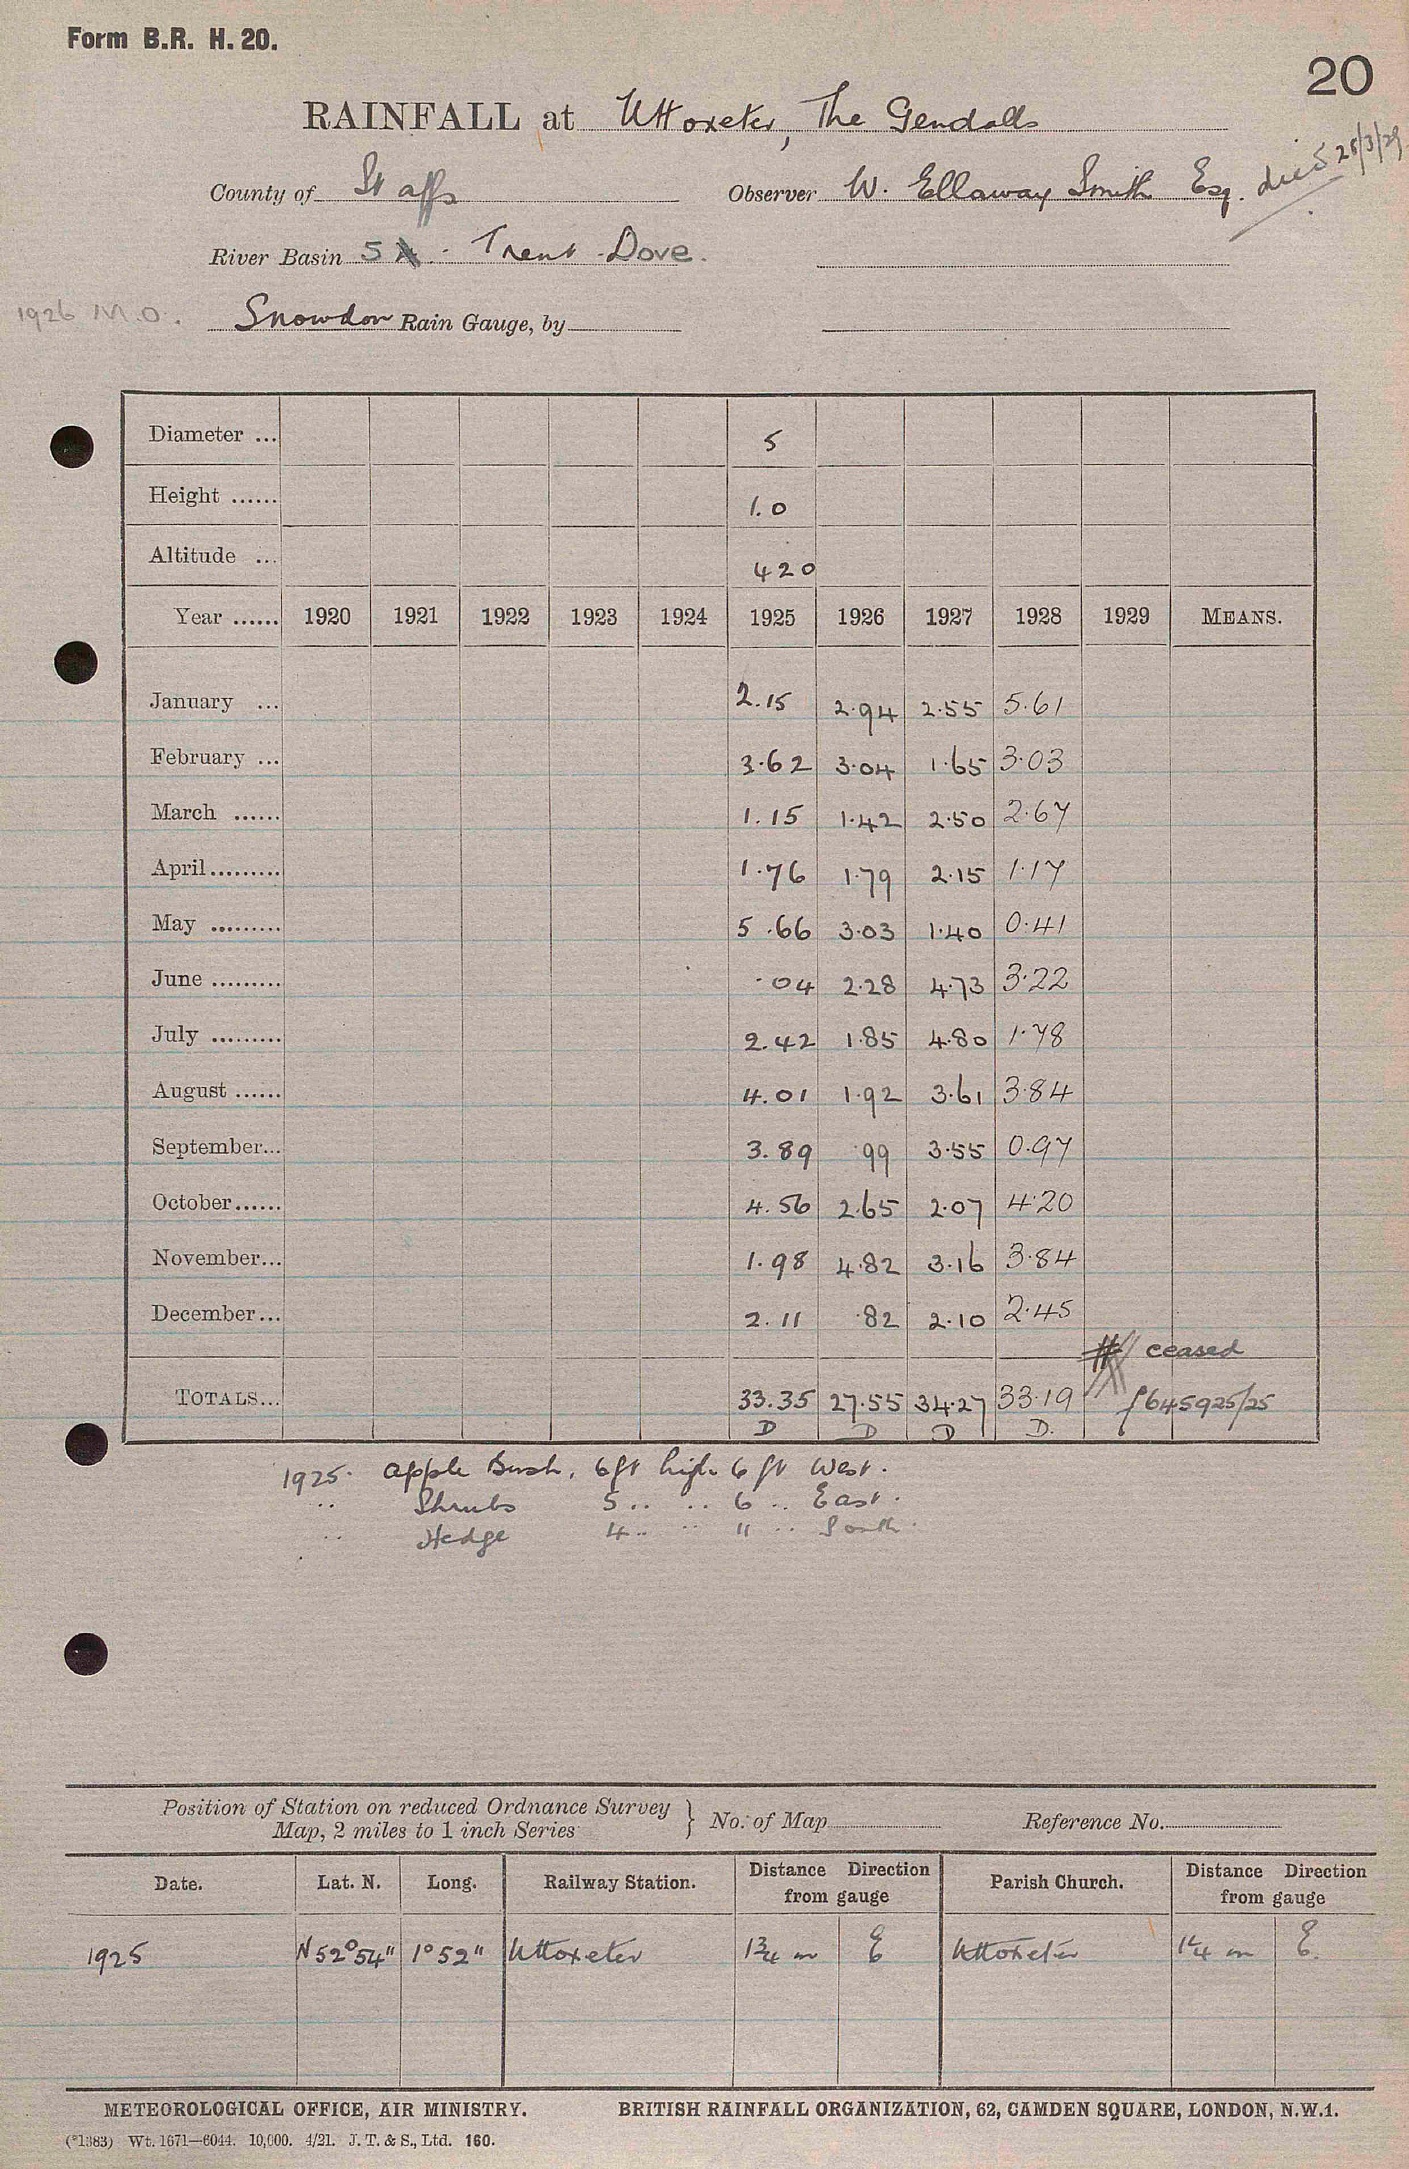 Form B.R. H. 20.
20
RAINFALL at Uttoxeter, The Gendalls
County of Staffs Observer W. Ellaway Smith Esq. died 28/3/29
River Basin 5 - Trent - Dove.
1926 M.O. Snowdon Rain Gauge, by
Diameter ... 5
Height ...... 1.0
Altitude ... 420
Year ...... 1920 1921 1922 1923 1924 1925 1926 1927 1928 1929 MEANS.
January ... 2.15 2.94 2.55 5.61
February ... 3.62 3.04 1.65 3.03
March ...... 1.15 1.42 2.50 2.67
April......... 1.76 1.79 2.15 1.17
May ......... 5.66 3.03 1.40 0.41
June ......... .04 2.28 4.73 3.22
July ......... 2.42 1.85 4.80 1.78
August ...... 4.01 1.92 3.61 3.84
September... 3.89 .99 3.55 0.97
October...... 4.56 2.65 2.07 4.20
November... 1.98 4.82 3.16 3.84
December... 2.11 .82 2.10 2.45
ceased
TOTALS... 33.35 27.55 34.27 33.19 f645925/25
D D D D.
1925. apple Bush, 6ft high 6 ft West.
.. Shrubs 5 .. .. 6 .. East.
.. Hedge 4 .. .. 11 .. South.
Position of Station on reduced Ordnance Survey
Map, 2 miles to 1 inch Series } No. of Map Reference No.
Date. Lat. N. Long. Railway Station. Distance Direction from gauge Parish Church. Distance Direction from gauge
1925 N 52°54" 1°52" Uttoxeter 1¾ m E Uttoxeter 1¼ m E.
METEOROLOGICAL OFFICE, AIR MINISTRY. BRITISH RAINFALL ORGANIZATION, 62, CAMDEN SQUARE, LONDON, N.W.1.
(*1383) Wt. 1671—6044. 10,000. 4/21. J. T. & S., Ltd. 160.